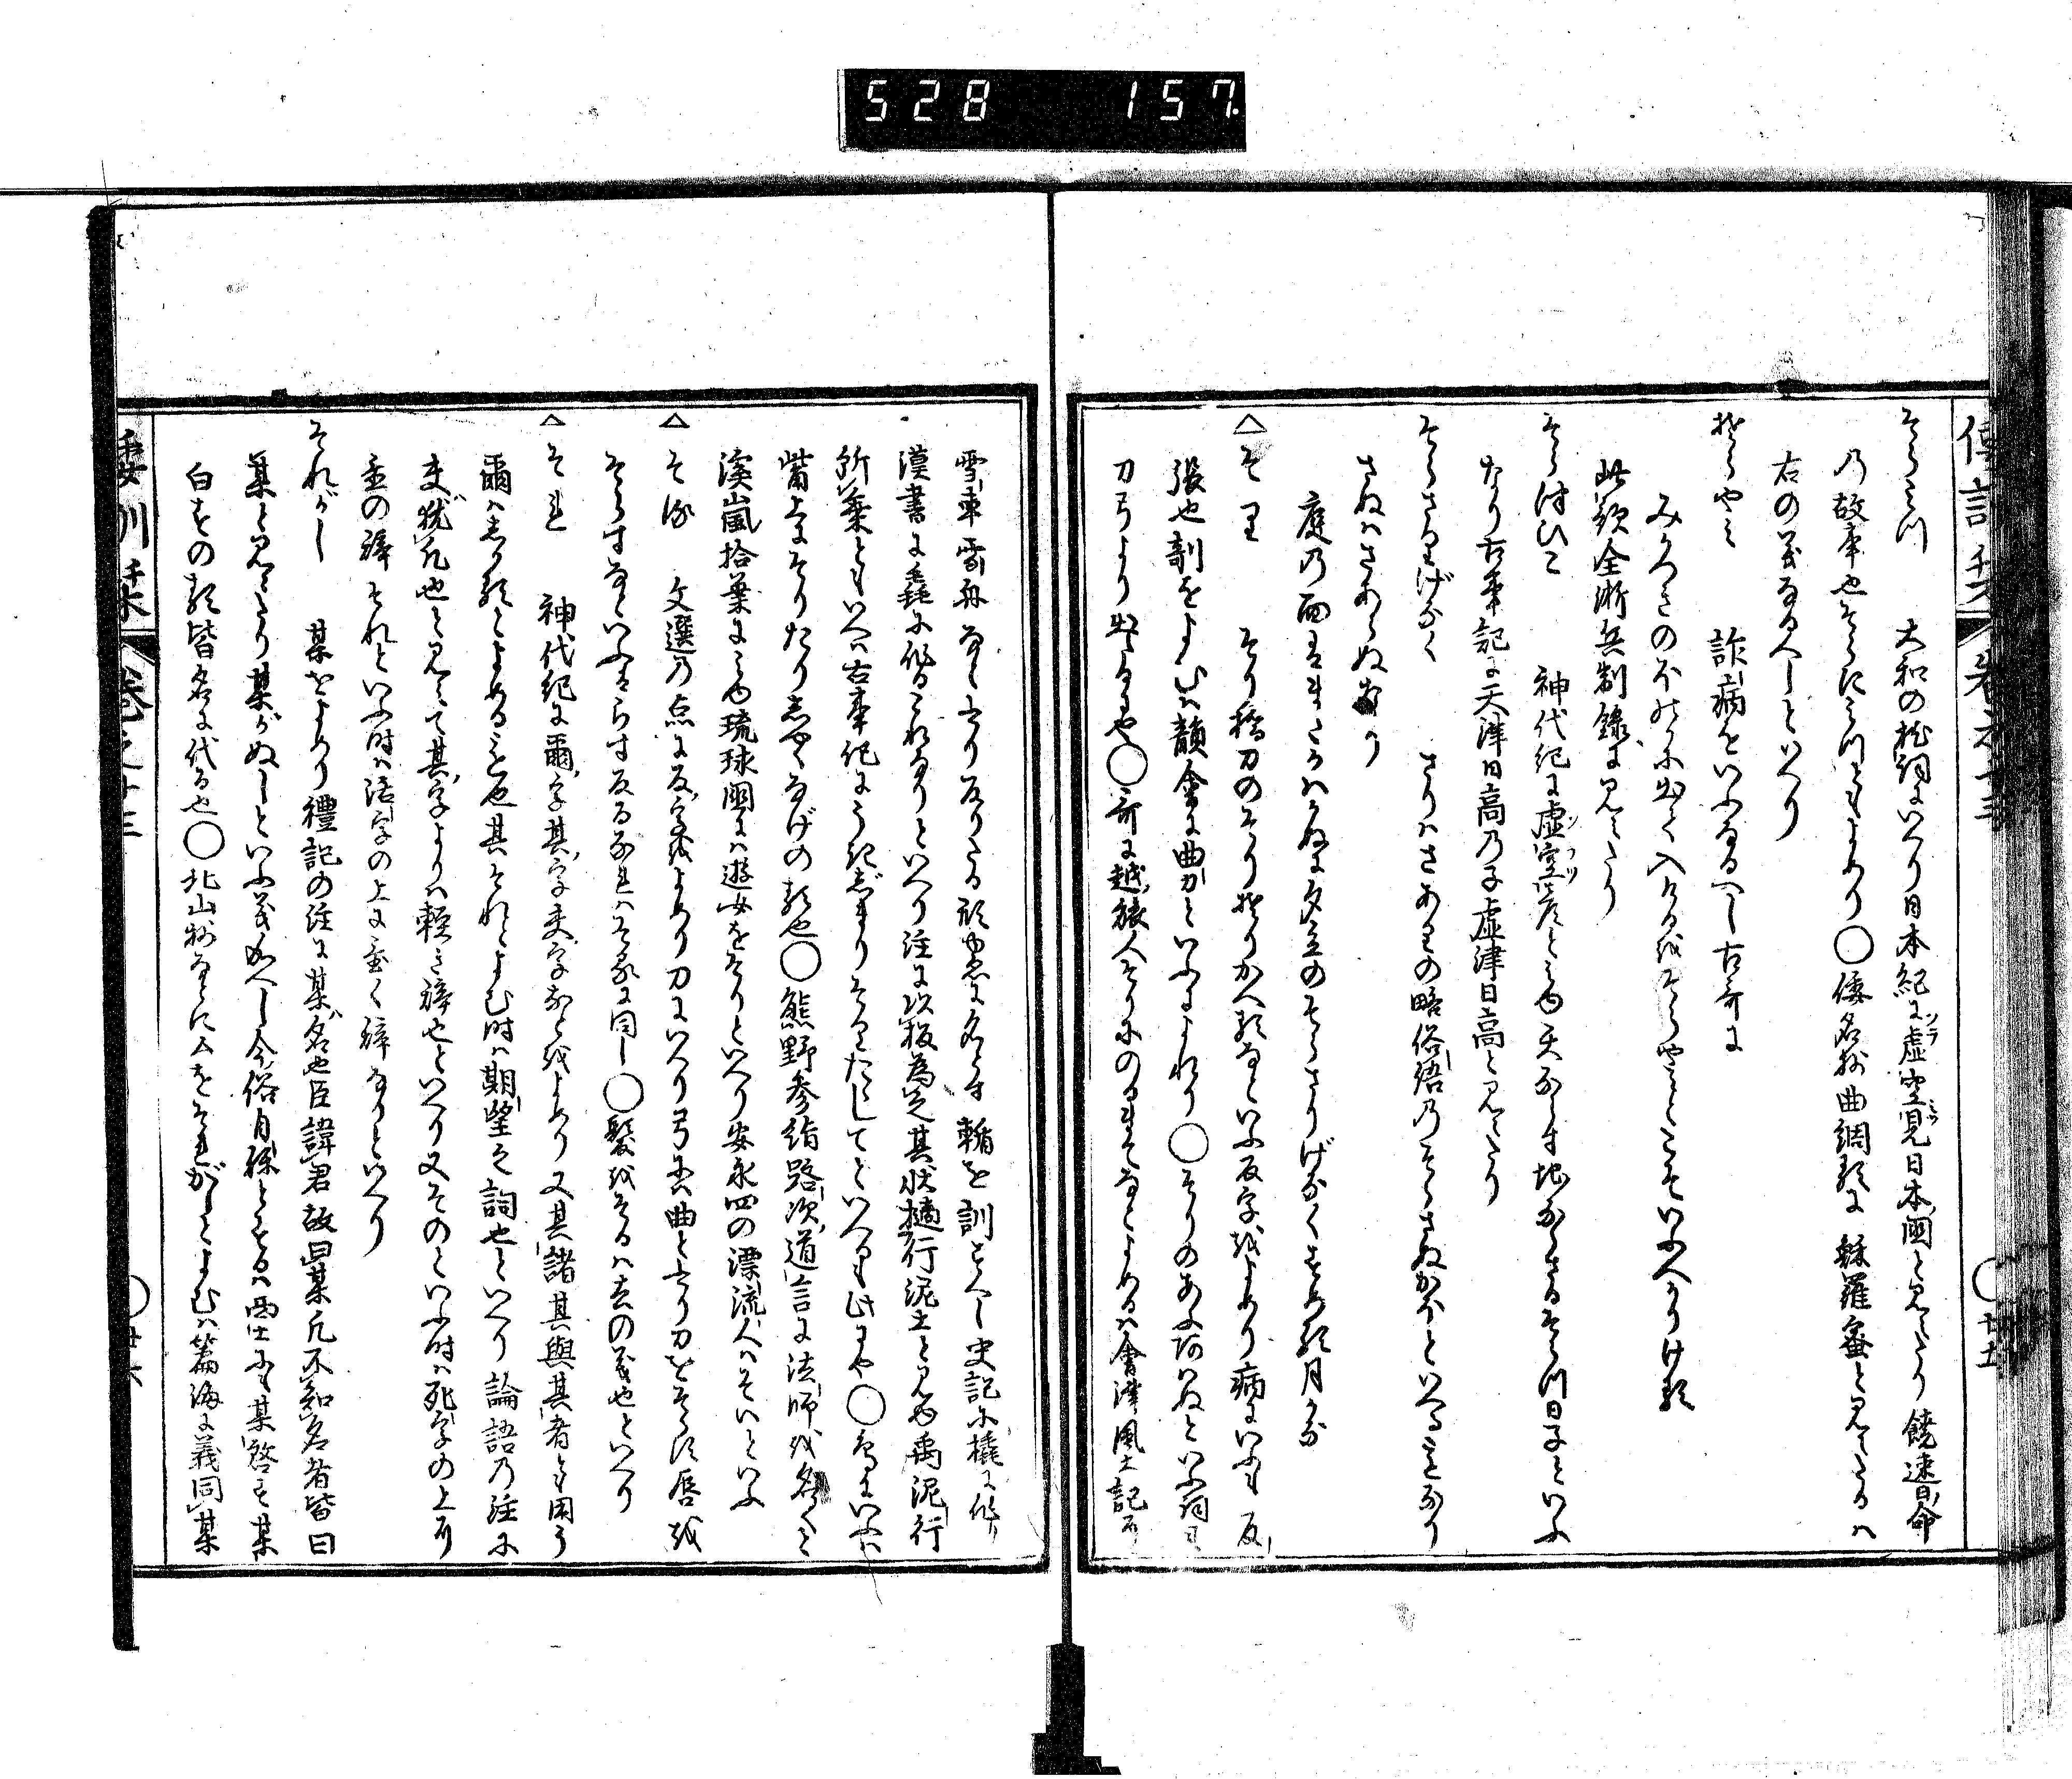 528 157
倭訓栞 巻之十三 ○廿五
そらみつ 大和の枕詞にいへり日本紀に虚空見日本國と見えたり饒速日命
の故事也そらにみつともよめり○倭名抄曲調類に蘇羅蜜と見えたるハ
右の義なるへしといへり
そらやみ 詐病をいふなるへし古哥に
みかへさのぶれハ出て入けるをそらやみとこそいふへかりけれ
此類全浙兵制録に見えたり
そらつひこ 神代紀に虚空彦とみゆ天ならす地ならさるそらつ日子といふ
なり古事記に天津日高乃子虚津日高と見えたり
そらさりげなく さりハさありの略俗語のそらさぬかほといへる意なり
さぬハさあらぬなり
庭の面はまたかハかぬに夕立のそらさりげなくすめる月かな
△そり そり橋刀のそりそりかへるなといふ反字をよめり病にいふも反
張也剞をよむハ韻會に曲刀といふによれり○そりのあふあハぬといふ詞は
刀弓より出たるにや○哥に越旅人そりにのるまてなとよめるハ會津風土記に
雪車雪舟なとあり反りたる形ゆゑに名とす輴を訓すへし史記に橇に作り
漢書に毳に作るこれなりといへり注に以板為之其状擿行泥土と見ゆ禹泥行
所乗ともいへハ古事記にうきじまりそりたゝしてといへるも此にや○鳥にいふハ
觜上にそりたりしやくなげの類也○熊野参詣路次道言に法師を名くと
渓嵐拾葉にみゆ琉球國にハ遊女をそりといへり安永四の漂流人ハそいといふ
△そる 文選の点に反字をよめり刀にいへり弓にハ曲とあり刀をそらす唇を
そらすなといふはらす反るなれハそるに同し○髪をそるハ去の義也といへり
△それ 神代紀に爾字其字夫字なとをよめり又其諸其與其者とも用う
爾ハしかるとよめる意也其それとよむ時ハ期望之詞也といへり論語の注に
夫猶凡也と見えて其字よりハ軽き辞也といへり又そのといふ時ハ死字の上に
重の辞それといふ時ハ活字の上に重く辞なりといへり
それがし 某をよめり禮記の注に某名也臣諱君故曰某凡不知名者皆曰
某と見えたり某がぬしといふ義なへし今俗月孫とするハ西土にも某啓す某
白すの類皆名に代る也○北山抄なとにムをそれがしとよむハ篇海に義同某
倭訓栞 巻之十三 ○廿六